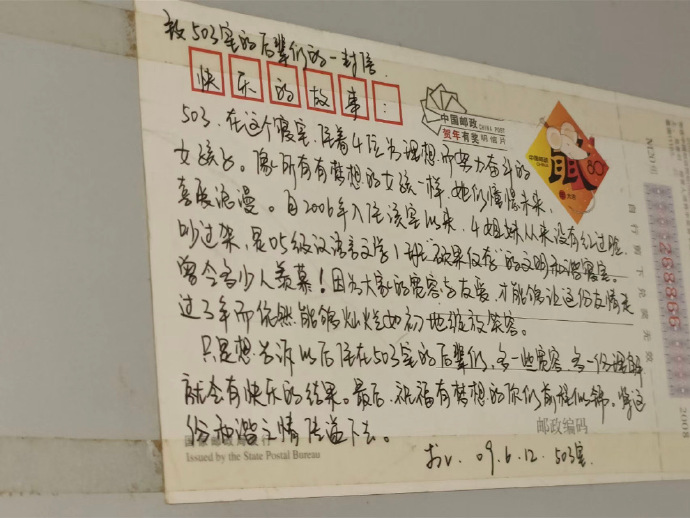 致503室的后辈们的一封信
快乐的故事:
中国邮政 CHINA POST
贺年有奖明信片
中国邮政
CHINA
鼠
80
503,在这个寝室,住着4位为理想而努力奋斗的
女孩子。像所有有梦想的女孩一样,她们憧憬未来,
喜欢浪漫。自2006年入住该室以来,4姐妹从来没有红过脸
吵过架,是05级汉语言文学1班“硕果仅存”的文明和谐寝室。
曾令多少人羡慕!因为大家的宽容与友爱,才能够让这份友情走
过3年而依然能够灿烂如初地绽放笑容。
只是想告诉以后住在503室的后辈们,多一些宽容,多一份理解
就会有快乐的结果。最后,祝福有梦想的你们前程似锦。将这
份和谐之情传递下去。
邮政编码
国家邮政局发行
Issued by the State Postal Bureau
09.6.12. 503室.
2008